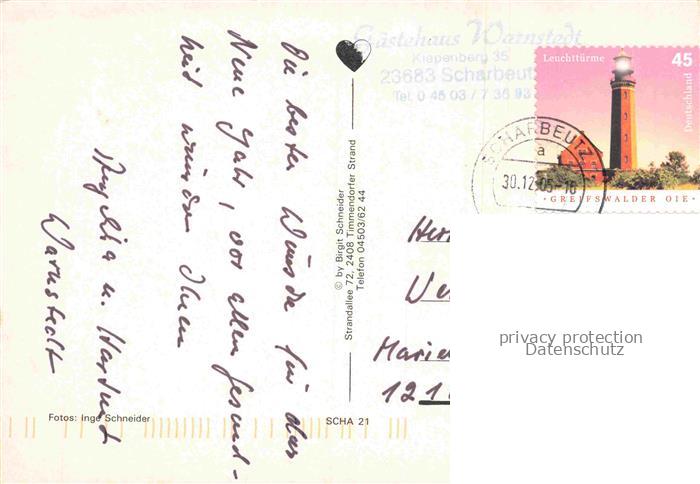 Die besten Wünsche für das
Neue Jahr, vor allem Gesund-
heit wünschen Ihnen
Angelika u. Hartmut
Warnstedt
Fotos: Inge Schneider
SCHA 21
© by Birgit Schneider
Strandallee 72, 2408 Timmendorfer Strand
Telefon 04503/62 44
Gästehaus Warnstedt
Kiepenberg 35
23683 Scharbeut
Tel. 0 45 03 / 7 35 93
Leuchttürme
45
Deutschland
GREIFSWALDER OIE
SCHARBEUTZ
a
30.12.05-16
Her
We
Marie
121
privacy protection
Datenschutz